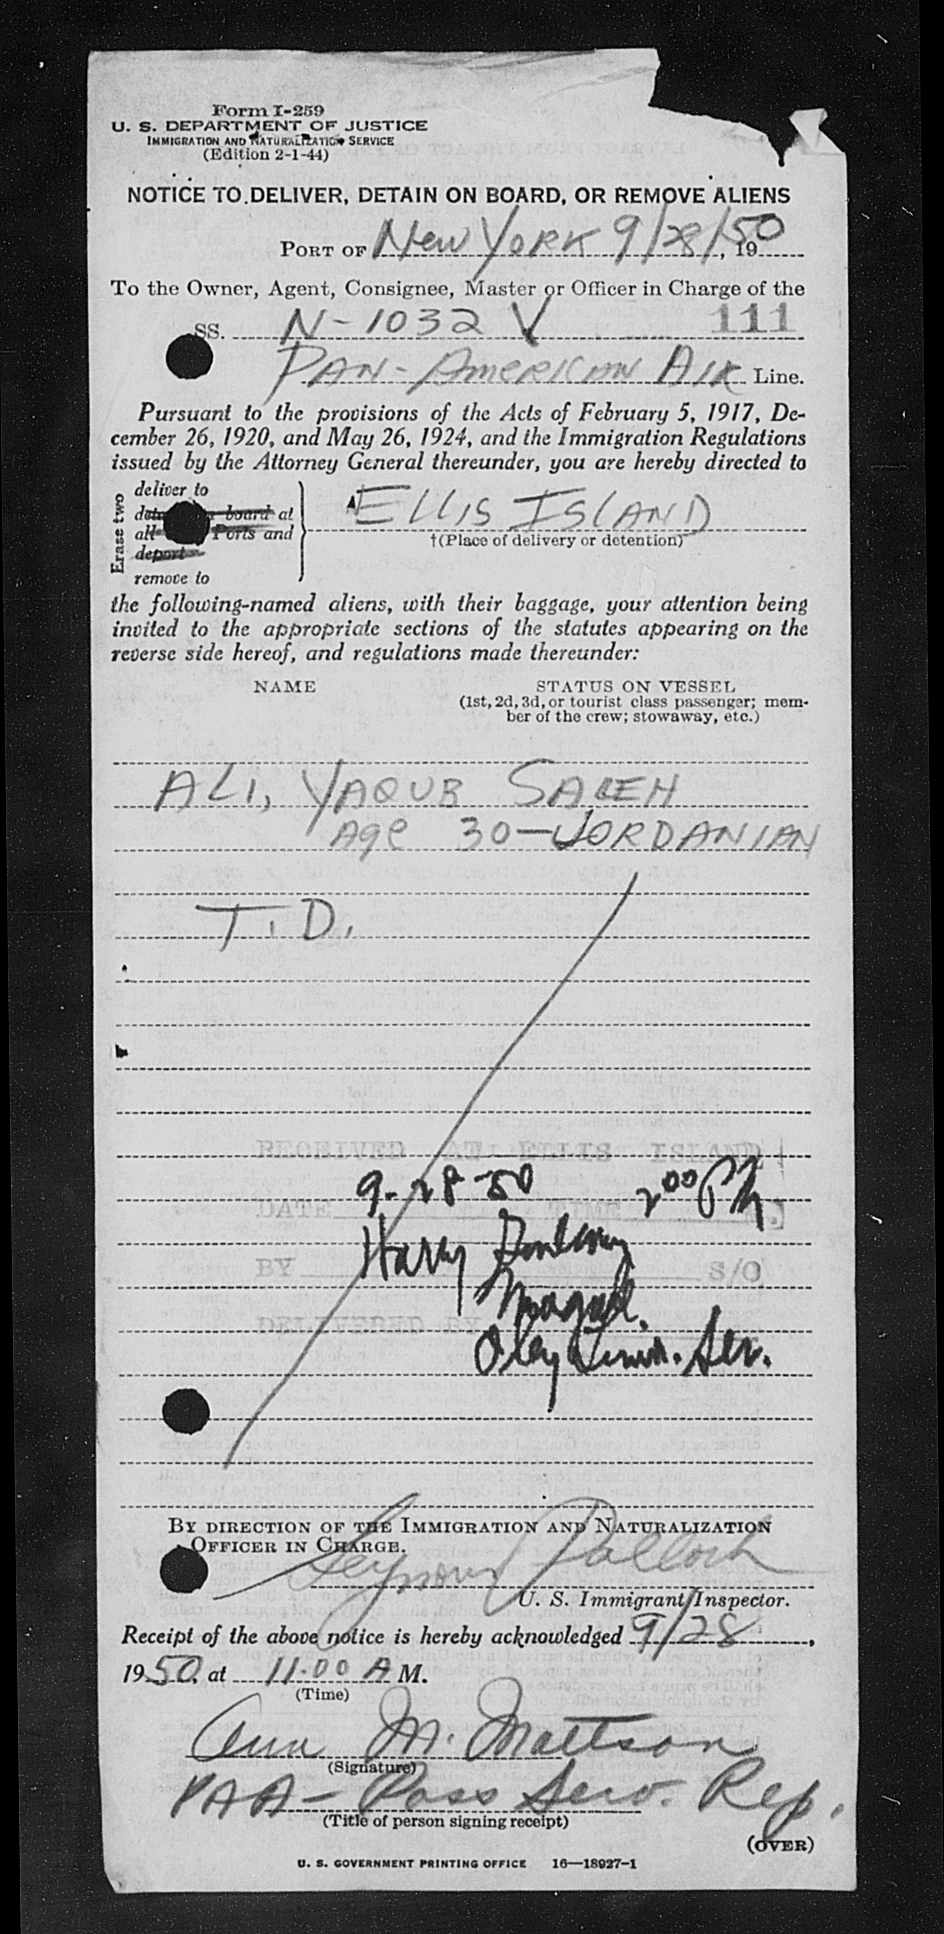 Form I-259
U. S. DEPARTMENT OF JUSTICE
IMMIGRATION AND NATURALIZATION SERVICE
(Edition 2-1-44)
NOTICE TO DELIVER, DETAIN ON BOARD, OR REMOVE ALIENS
PORT OF New York 9/28/, 1950
To the Owner, Agent, Consignee, Master or Officer in Charge of the
SS. N-1032 V 111
PAN-AMERICAN AIR Line.
Pursuant to the provisions of the Acts of February 5, 1917, De-
cember 26, 1920, and May 26, 1924, and the Immigration Regulations
issued by the Attorney General thereunder, you are hereby directed to
Erase two
deliver to
board at
all Ports and
deport
remove to
ELLIS ISLAND
†(Place of delivery or detention)
the following-named aliens, with their baggage, your attention being
invited to the appropriate sections of the statutes appearing on the
reverse side hereof, and regulations made thereunder:
NAME STATUS ON VESSEL
(1st, 2d, 3d, or tourist class passenger; mem-
ber of the crew; stowaway, etc.)
ALI, YAQUB SALEH
Age 30—JORDANIAN
T. D.
RECEIVED AT ELLIS ISLAND
9-28-50 2 00 PM
DATE TIME
Harry
BY S/O
DELIVERED BY
BY DIRECTION OF THE IMMIGRATION AND NATURALIZATION
OFFICER IN CHARGE.
Seymour Pollock
U. S. Immigrant Inspector.
Receipt of the above notice is hereby acknowledged 9/28,
1950, at 11:00 A M.
(Time)
Ann M. Mattson
(Signature)
PAA - Pass Serv. Rep.
(Title of person signing receipt)
(OVER)
U. S. GOVERNMENT PRINTING OFFICE 16—18927-1